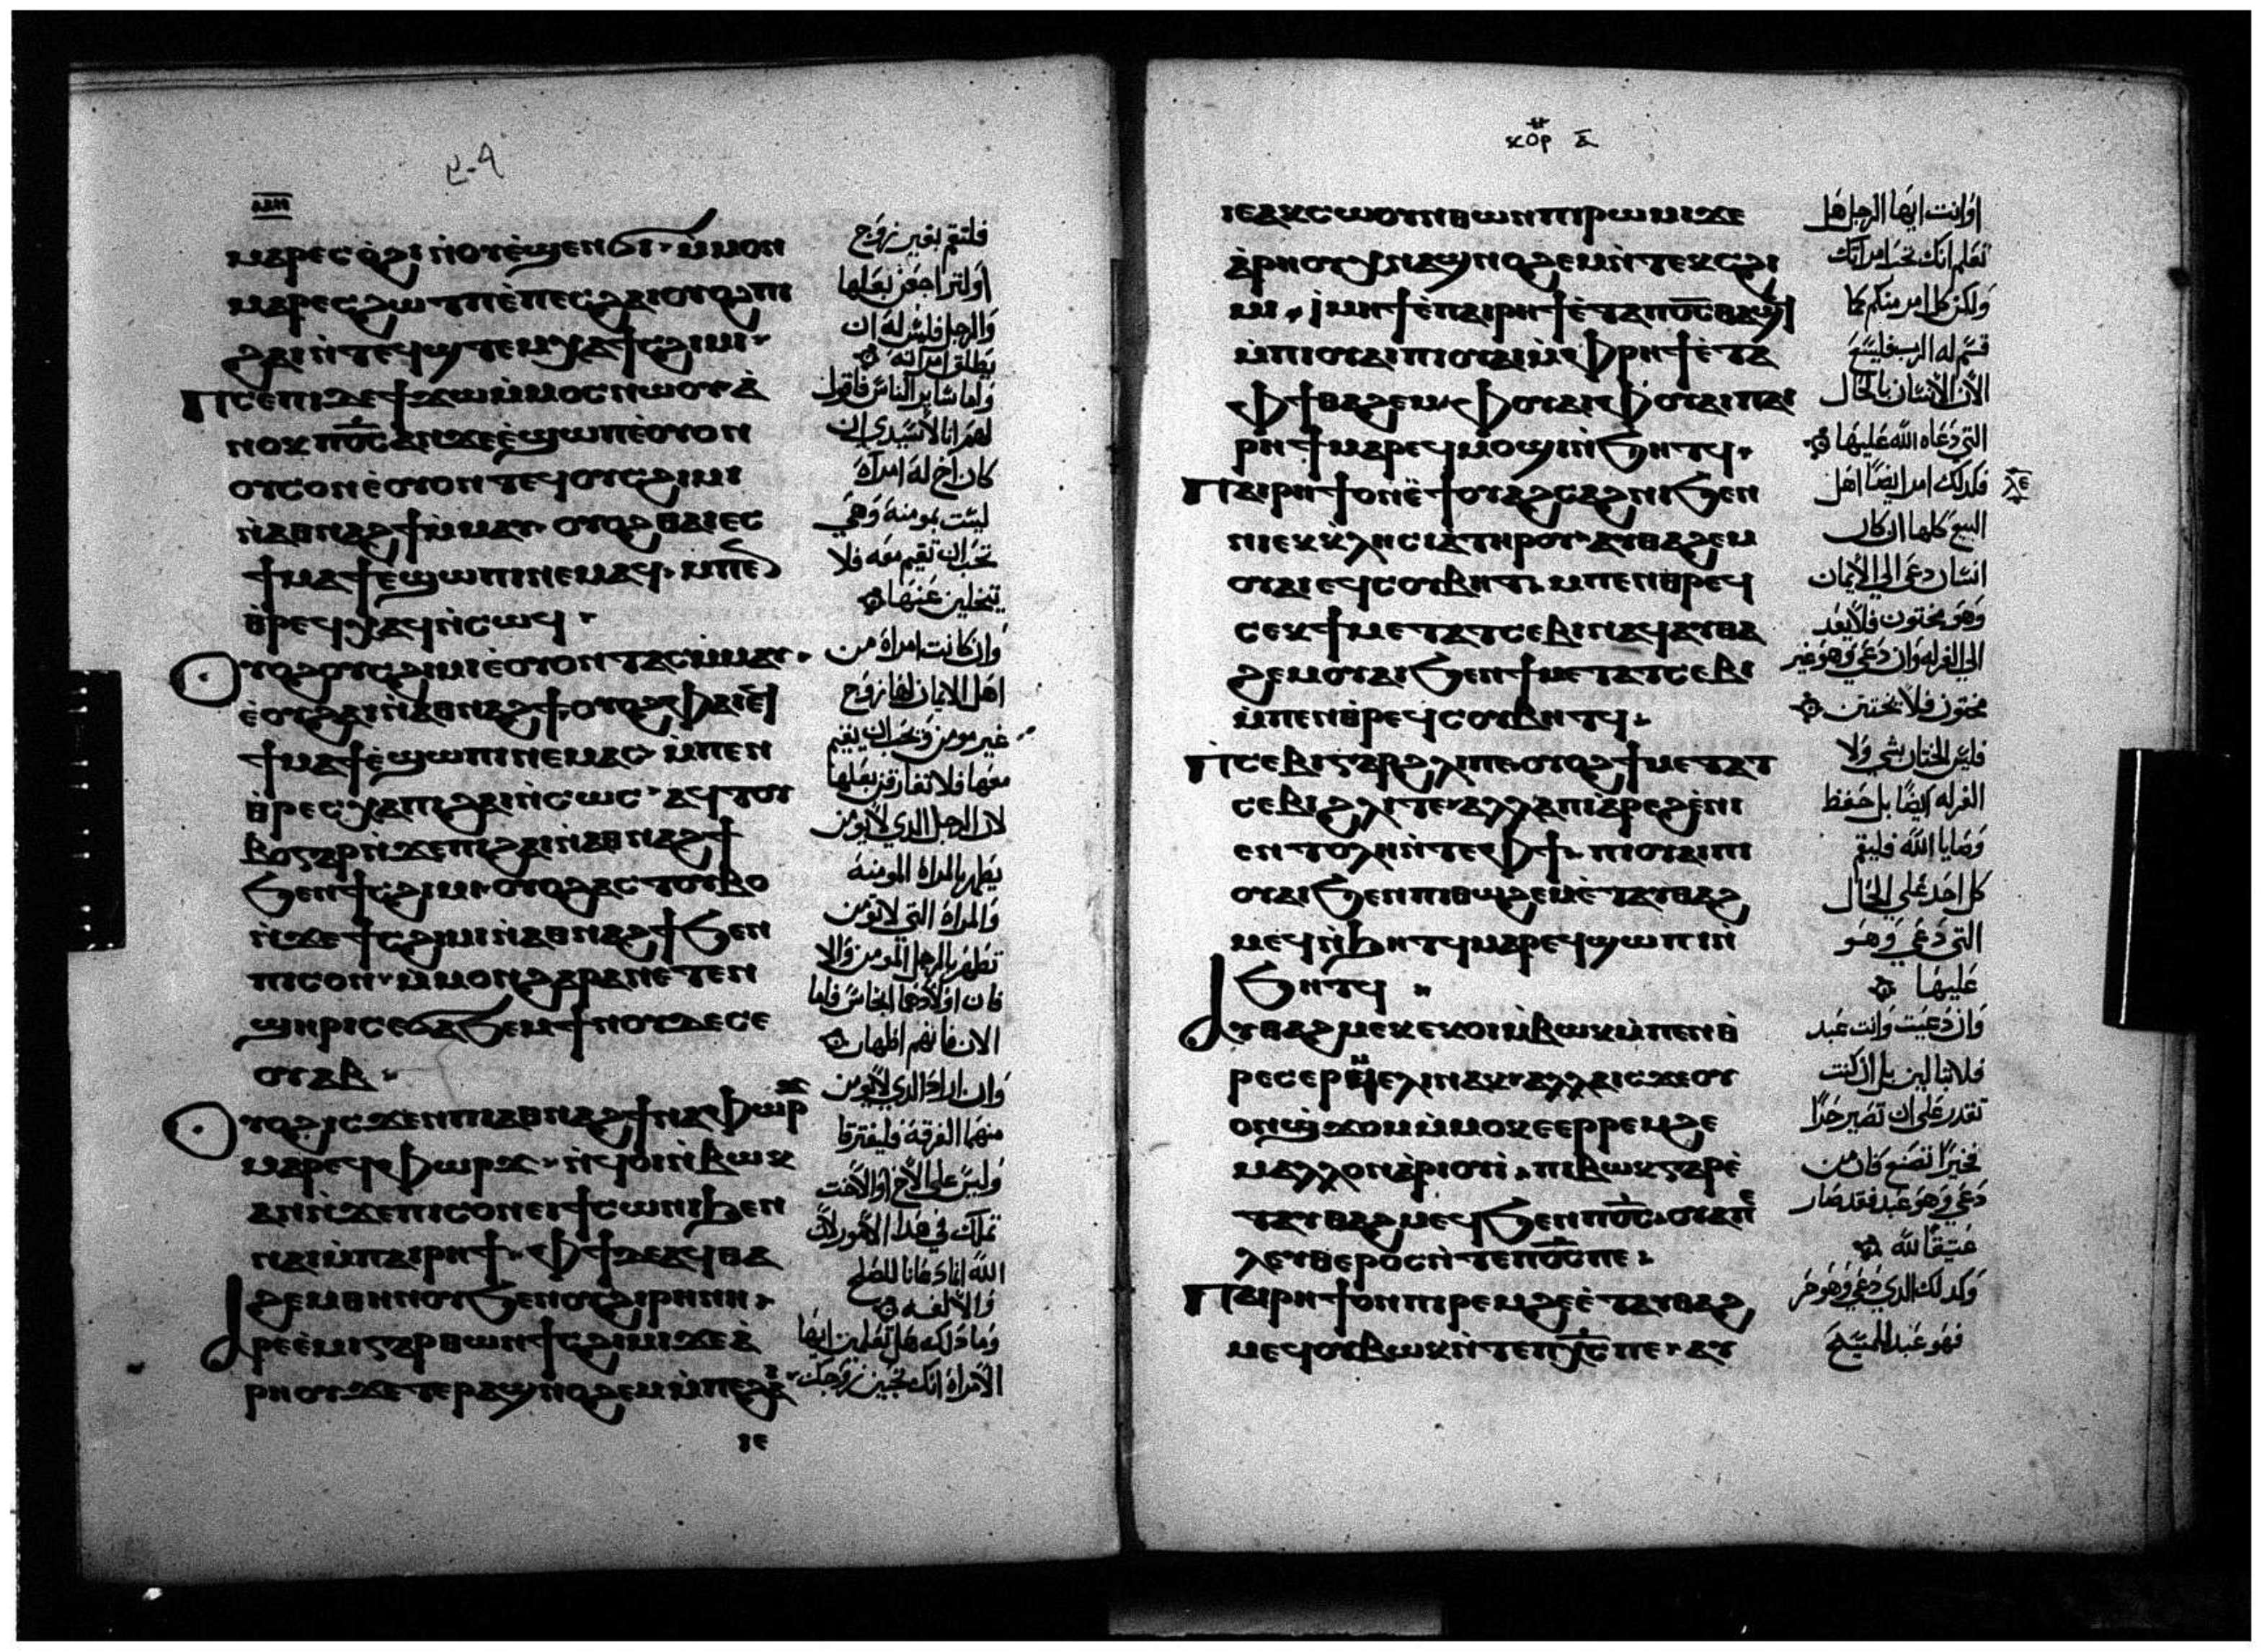 ⲙⲁⲣⲉⲥⲟ̀ϩⲓ ⲛ̀ⲟⲩⲉ̀ϣⲉⲛϭⲓ· ⲙ̀ⲙⲟⲛ
ⲙⲁⲣⲉⲥϩⲱⲧⲡ ⲉ̀ⲡⲉⲥϩⲁⲓ ⲟⲩⲟϩ ⲡⲓ
ϩⲁⲓ ⲛ̀ⲧⲉϥϣⲧⲉⲙⲭⲁ ϯⲥϩⲓⲙⲓ·
ⲡⲥⲉⲡⲓ ⲇⲉ ϯϫⲱ ⲙ̀ⲙⲟⲥ ⲛⲱⲟⲩ ⲁ̀
ⲛⲟⲕ ⲡⲟ̅ⲥ̅ ⲁⲛ ϫⲉ ⲉ̀ϣⲱⲡ ⲉ̀ⲟⲩⲟⲛ
ⲟⲩⲥⲟⲛ ⲉ̀ⲟⲩⲟⲛ ⲧⲉϥ ⲟⲩⲥϩⲓⲙⲓ
ⲛ̀ⲁⲑⲛⲁϩϯ ⲙ̀ⲙⲁⲩ· ⲟⲩⲟϩ ⲑⲁⲓ ⲉⲥ
ϯⲙⲁϯ ⲉ̀ϣⲱⲡⲓ ⲛⲉⲙⲁϥ· ⲙⲡⲉⲛ
ⲑ̀ⲣⲉϥⲭⲁϥ ⲛ̀ⲥⲱϥ·
ⲟⲩⲟϩ ⲟⲩⲥϩⲓⲙⲓ ⲉ̀ⲟⲩⲟⲛ ⲧⲁⲥ ⲙ̀ⲙⲁⲩ·
ⲉ̀ⲟⲩϩⲁⲓ ⲛ̀ⲁⲑⲛⲁϩϯ· ⲟⲩⲟϩ ⲫⲁⲓ ⲉϥ
ϯⲙⲁϯ ⲉ̀ϣⲱⲡⲓ ⲛⲉⲙⲁⲥ· ⲙ̀ⲡⲉⲛ
ⲑ̀ⲣⲉⲥⲭⲁ ⲡⲓϩⲁⲓ ⲛ̀ⲥⲱⲥ· ⲁϥⲧⲟⲩ
ⲃⲟ ⲅⲁⲣ ⲛ̀ϫⲉ ⲡⲓϩⲁⲓ ⲛ̀ⲁⲑⲛⲁϩϯ
ϧⲉⲛ ϯⲥϩⲓⲙⲓ· ⲟⲩⲟϩ ⲁⲥⲧⲟⲩⲃⲟ
ⲛ̀ϫⲉ ϯⲥϩⲓⲙⲓ ⲛ̀ⲁⲑⲛⲁϩϯ ϧⲉⲛ
ⲡⲓⲥⲟⲛ· ⲙ̀ⲙⲟⲛ ϩⲁⲣⲁ ⲛⲉⲧⲉⲛ
ϣⲏⲣⲓ ⲥⲉϭⲁϧⲉⲙ ϯⲛⲟⲩ ⲇⲉ ⲥⲉ
ⲟⲩⲁⲃ·
ⲟⲩⲟϩ ⲓⲥϫⲉⲛ ⲡⲓⲁⲑⲛⲁϩϯ ⲛⲁⲫⲱⲣϫ
ⲙⲁⲣⲉϥⲫⲱⲣϫ· ⲛ̀ϥⲟⲓ ⲛ̀ⲃⲱⲕ
ⲁⲛ ⲛ̀ϫⲉ ⲡⲓⲥⲟⲛ ⲉⲓ ϯⲥⲱⲛⲓ ϧⲉⲛ
ⲛⲁⲓ ⲙ̀ⲡⲁⲓⲣⲏϯ· ⲫϯ ⲇⲉ ⲁϥⲑⲁ
ϩⲉⲙ ⲑⲏⲛⲟⲩ ϧⲉⲛ ⲟⲩϩⲓⲣⲏⲛⲏ·
ⲁⲣⲉⲉ̀ⲙⲓ ⲅⲁⲣ ⲑⲱⲛ ϯⲥϩⲓⲙⲓ ϫⲉ ⲁ̀
ⲣⲏⲟⲩ ϫⲉ ⲧⲉⲣⲁϣⲛⲟϩⲉⲙ ⲙ̀ⲡⲉϩⲁⲓ
ⲓⲉ
فلتقم بغير زوج
او لتراجعن بعلها
والرجل فليس له ان
يطلق امراته
واما ساير الناس فاقول
لهم انا لا سيدي ان
كان اخ له امراة
ليست بمومنة وهي
تحب ان تقيم معه فلا
يتخلين عنها
وان كانت امراة من
اهل الايمان لها زوج
غير مومن ويحب ان يقيم
معها فلا تفارقن بعلها
لان الرجل الذي لا يومن
يطهر بالمراة المومنة
والمراة التي لا تومن
تطهر بالرجل المومن والا
فان اولادهما انجاس فاما
الان فانهم اطهار
وان اراد الذي لا يومن
منهما الفرقة فليفترقا
وليس على الاخ او الاخت
تملك في هذا الامور لان
الله انما دعانا للصلح
والالفه
وما ذلك هل تعلمين ايها
الامراة انك تحيين زوجك
ⲕⲟⲣ ⲁ̅
ⲓⲉ ⲁⲕⲥⲱⲟⲩⲛ ⲑⲱⲛ ⲡⲓⲣⲱⲙⲓ ϫⲉ
ⲁ̀ⲣⲏⲟⲩ ⲭⲛⲁϣⲛⲟϩⲉⲙ ⲛ̀ⲧⲉⲕⲥϩⲓ
ⲙⲓ· ⲓⲙⲏϯ ⲉ̀ⲡⲁⲓⲣⲏϯ ⲉ̀ⲧⲁ ⲡⲟ̅ⲥ̅ ⲑⲁϣϥ
ⲙ̀ⲡⲓⲟⲩⲁⲓ ⲡⲓⲟⲩⲁⲓ ⲙ̀ⲫⲣⲏϯ ⲉ̀ⲧⲁ
ⲫϯ ⲑⲁϩⲉⲙ ⲫⲟⲩⲁⲓ ⲫⲟⲩⲁⲓ ⲡⲁⲓ
ⲣⲏϯ ⲙⲁⲣⲉϥⲙⲟϣⲓ ⲛ̀ϧⲏⲧϥ·
ⲡⲁⲓⲣⲏϯ ⲟⲛ ⲉ̀ϯⲟⲩⲁϩⲥⲁϩⲛⲓ ϧⲉⲛ
ⲛⲓⲉⲕⲕⲗⲏⲥⲓⲁ ⲧⲏⲣⲟⲩ· ⲁⲩⲑⲁϩⲉⲙ
ⲟⲩⲁⲓ ⲉϥⲥⲟⲩⲃⲏⲧ· ⲙⲡⲉⲛⲑⲣⲉϥ
ⲥⲉⲕ ϯⲙⲉⲧⲁⲧⲥⲉⲃⲓ ⲛⲁϥ ⲁⲩⲑⲁ
ϩⲉⲙ ⲟⲩⲁⲓ ϧⲉⲛ ϯⲙⲉⲧⲁⲧⲥⲉⲃⲓ
ⲙ̀ⲡⲉⲛⲑ̀ⲣⲉϥⲥⲟⲩⲃⲏⲧϥ·
ⲡⲥⲉⲃⲓ ⲅⲁⲣ ϩⲗⲓ ⲡⲉ· ⲟⲩⲟϩ ϯⲙⲉⲧⲁⲧ
ⲥⲉⲃⲓ ϩⲗⲓ ⲧⲉ· ⲁⲗⲗⲁ ⲡⲓⲁⲣⲉϩ ⲉ̀ⲛⲓ
ⲉⲛⲧⲟⲗⲏ ⲛ̀ⲧⲉ ⲫϯ· ⲡⲓⲟⲩⲁⲓ ⲡⲓ
ⲟⲩⲁⲓ ϧⲉⲛ ⲡⲓⲑⲱϩⲉⲙ ⲉ̀ⲧⲁⲩⲑⲁϩ
ⲙⲉϥ ⲛ̀ϧⲏⲧϥ ⲙⲁⲣⲉϥϣⲱⲡⲓ ⲛ̀
ϧⲏⲧϥ ·
ⲁⲩⲑⲁϩⲙⲉⲕ ⲉⲕⲟⲓ ⲙ̀ⲃⲱⲕ ⲙ̀ⲡⲉⲛⲑ̀
ⲣⲉⲥⲉⲣⲙⲉⲗⲓⲛ ⲛⲁⲕ· ⲁⲗⲗⲁ ⲓⲥϫⲉ ⲟⲩ
ⲟⲛϣϫⲟⲙ ⲙ̀ⲙⲟⲕ ⲉⲉⲣⲣⲉⲙϩⲉ
ⲙⲁⲗⲗⲟⲛ ⲁ̀ⲣⲓⲟⲩⲓ̀· ⲡⲓⲃⲱⲕ ⲅⲁⲣ ⲉ̀
ⲧⲁⲩⲑⲁϩⲙⲉϥ ϧⲉⲛ ⲡⲟ̅ⲥ̅ ⲟⲩⲁⲡⲉ
ⲗⲉⲩⲑⲉⲣⲟⲥ ⲛ̀ⲧⲉ ⲡⲟ̅ⲥ̅ ⲡⲉ·
ⲡⲁⲓⲣⲏϯ ⲟⲛ ⲡⲓⲣⲉⲙϩⲉ ⲉ̀ⲧⲁⲩⲑⲁϩ
ⲙⲉϥ ⲟⲩⲃⲱⲕ ⲛ̀ⲧⲉ ⲡⲭ̅ⲥ̅ ⲡⲉ· ⲁⲩ
او انت ايها الرجل هل
تعلم انك تحي امراتك
ولكن كل امر منكم كما
قسم له الرب فليسع
الان الانسان بالحال
التي دعاه الله عليها
فكذلك امر ايضا اهل
البيع كلها ان كان
انسان دعى الى الايمان
وهو مختون فلا يعد
الى الغرله وان دعي وهو غير
مختون فلا يختتن
فليس الختان بشي ولا
الغرله ايضا بل حفظ
وصايا الله فليقم
كل احد على الحال
التي دعي وهو
عليها
وان دعيت وانت عبد
فلا تبالين بل ان كنت
تقدر على ان تصير حرا
فخيرا تصنع فان من
دعي وهو عبد فقد صار
عتيقا لله
وكذلك الذي دعي وهو حر
فهو عبد المسيح